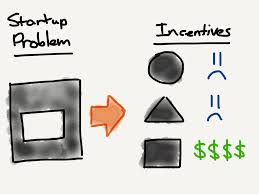 Startup
Problem
Incentives
$$$$